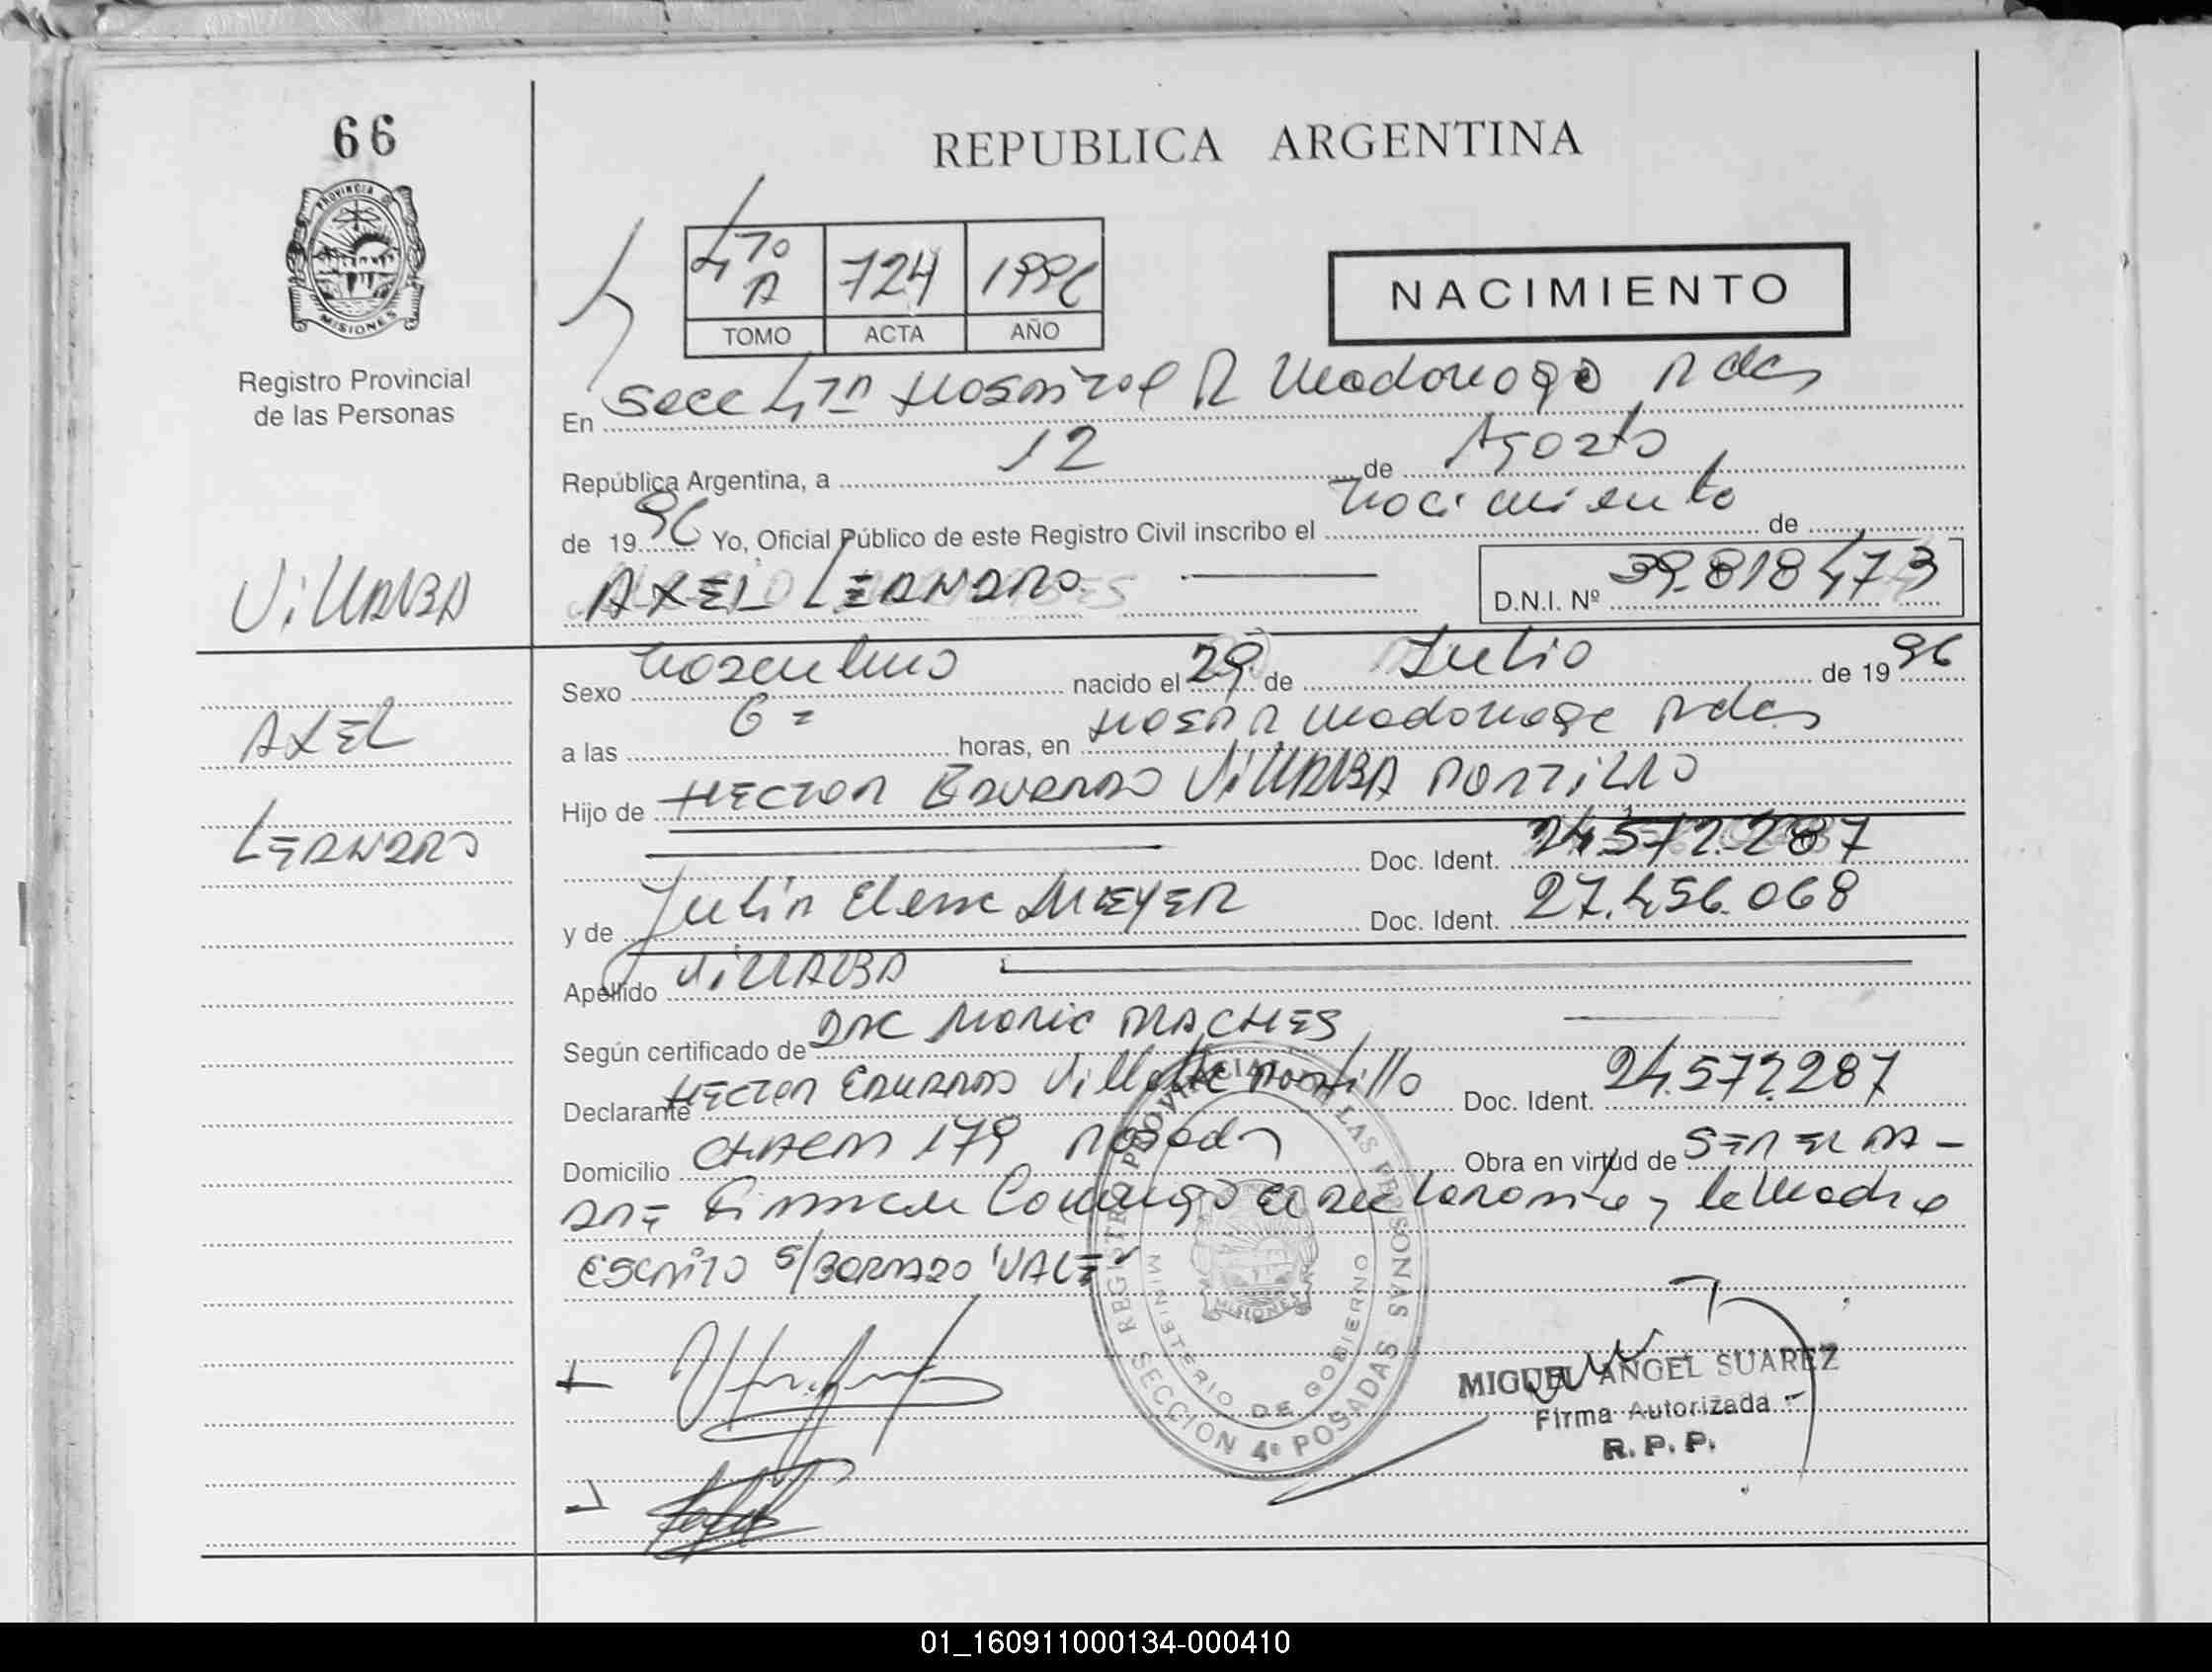 66
PROVINCIA DE
MISIONES
Registro Provincial
de las Personas
REPUBLICA ARGENTINA
4to A 724 1996
TOMO ACTA AÑO
NACIMIENTO
En Secc 4ta Hospital R Madariaga Pdas
República Argentina, a 12 de Agosto
de 1996 Yo, Oficial Público de este Registro Civil inscribo el nacimiento de
VILLALBA
AXEL LEANDRO D.N.I. Nº 39.818.473
AXEL
LEANDRO
Sexo masculino nacido el 29 de Julio de 1996
a las 6 horas, en Hosp R Madariaga Pdas
Hijo de HECTOR EDUARDO VILLALBA PORTILLO
Doc. Ident. 24.572.287
y de Julia Elena MEYER Doc. Ident. 27.456.068
Apellido VILLALBA
Según certificado de Maria
Declarante HECTOR EDUARDO Villalba Portillo Doc. Ident. 24.572.287
Domicilio CHACRA 179 Posadas Obra en virtud de SER EL PA-
DRE Firman conmigo el declarante y la madre
ESCRITO S/BORRADO "VALE"
REGISTRO PROVINCIAL DE LAS PERSONAS
MINISTERIO DE GOBIERNO
MISIONES
SECCION 4º POSADAS
MIGUEL ANGEL SUAREZ
Firma Autorizada
R. P. P.
01_160911000134-000410